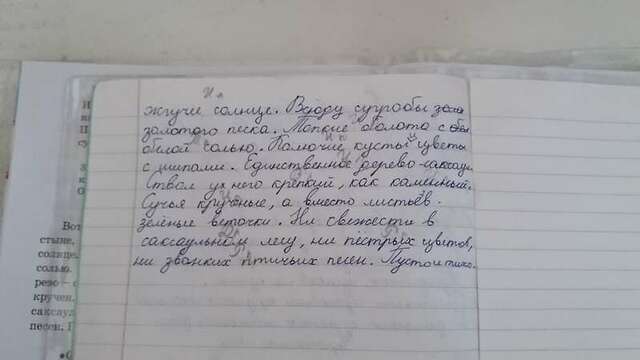 жгучее солнце. Всюду сугробы зола
золотого песка. Топкие болота с бы
белой солью. Колючие кусты цветы
с шипами. Единственное дерево-саксаул.
Ствол у него крепкий, как каменный.
Сучья кручёные, а вместо листьев -
зелёные веточки. Ни свежести в
саксаульном лесу, ни пёстрых цветов,
ни звонких птичьих песен. Пусто и тихо.
Вот
стыне.
солнце
солью.
рево – с
кручен
саксау
песен. П